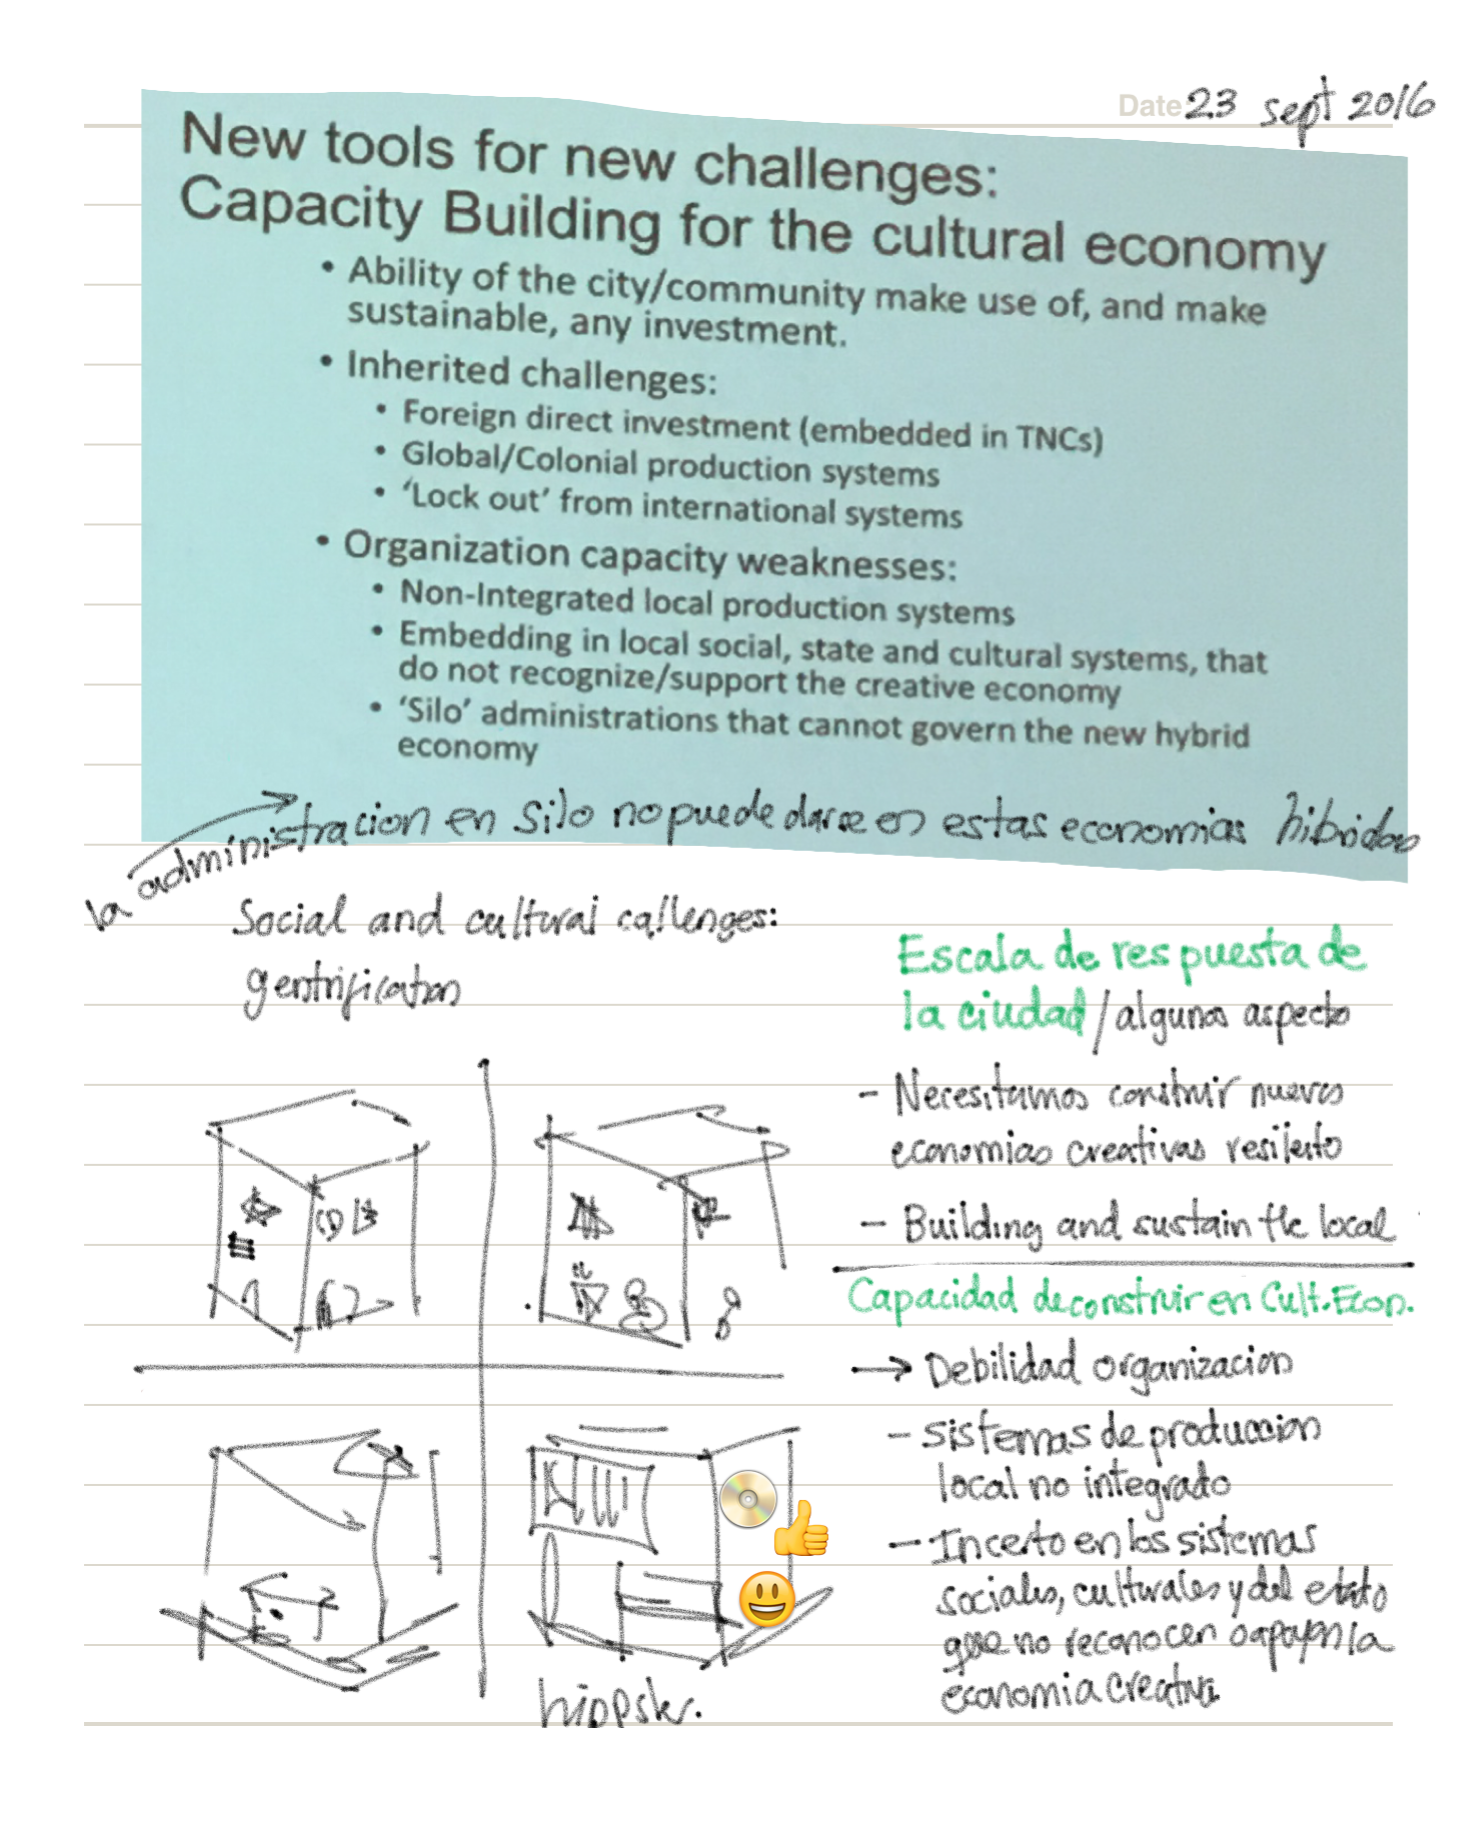 Date 23 sept 2016
New tools for new challenges:
Capacity Building for the cultural economy
• Ability of the city/community make use of, and make
sustainable, any investment.
• Inherited challenges:
• Foreign direct investment (embedded in TNCs)
• Global/Colonial production systems
• ‘Lock out’ from international systems
• Organization capacity weaknesses:
• Non-Integrated local production systems
• Embedding in local social, state and cultural systems, that
do not recognize/support the creative economy
• ‘Silo’ administrations that cannot govern the new hybrid
economy
la administracion en silo no puede darse en estas economias hibridas
Social and cultural callenges:
gentrification
Escala de respuesta de
la ciudad/algunos aspecto
- Necesitamos construir nuevas
economias creativas
- Building and sustain the local
Capacidad de construir en Cult. Econ.
→ Debilidad organizacion
- sistemas de produccion
local no integrado
- Incerto en los sistemas
sociales, culturales y del estado
que no reconocen o apoyan la
economia creativa.
CD